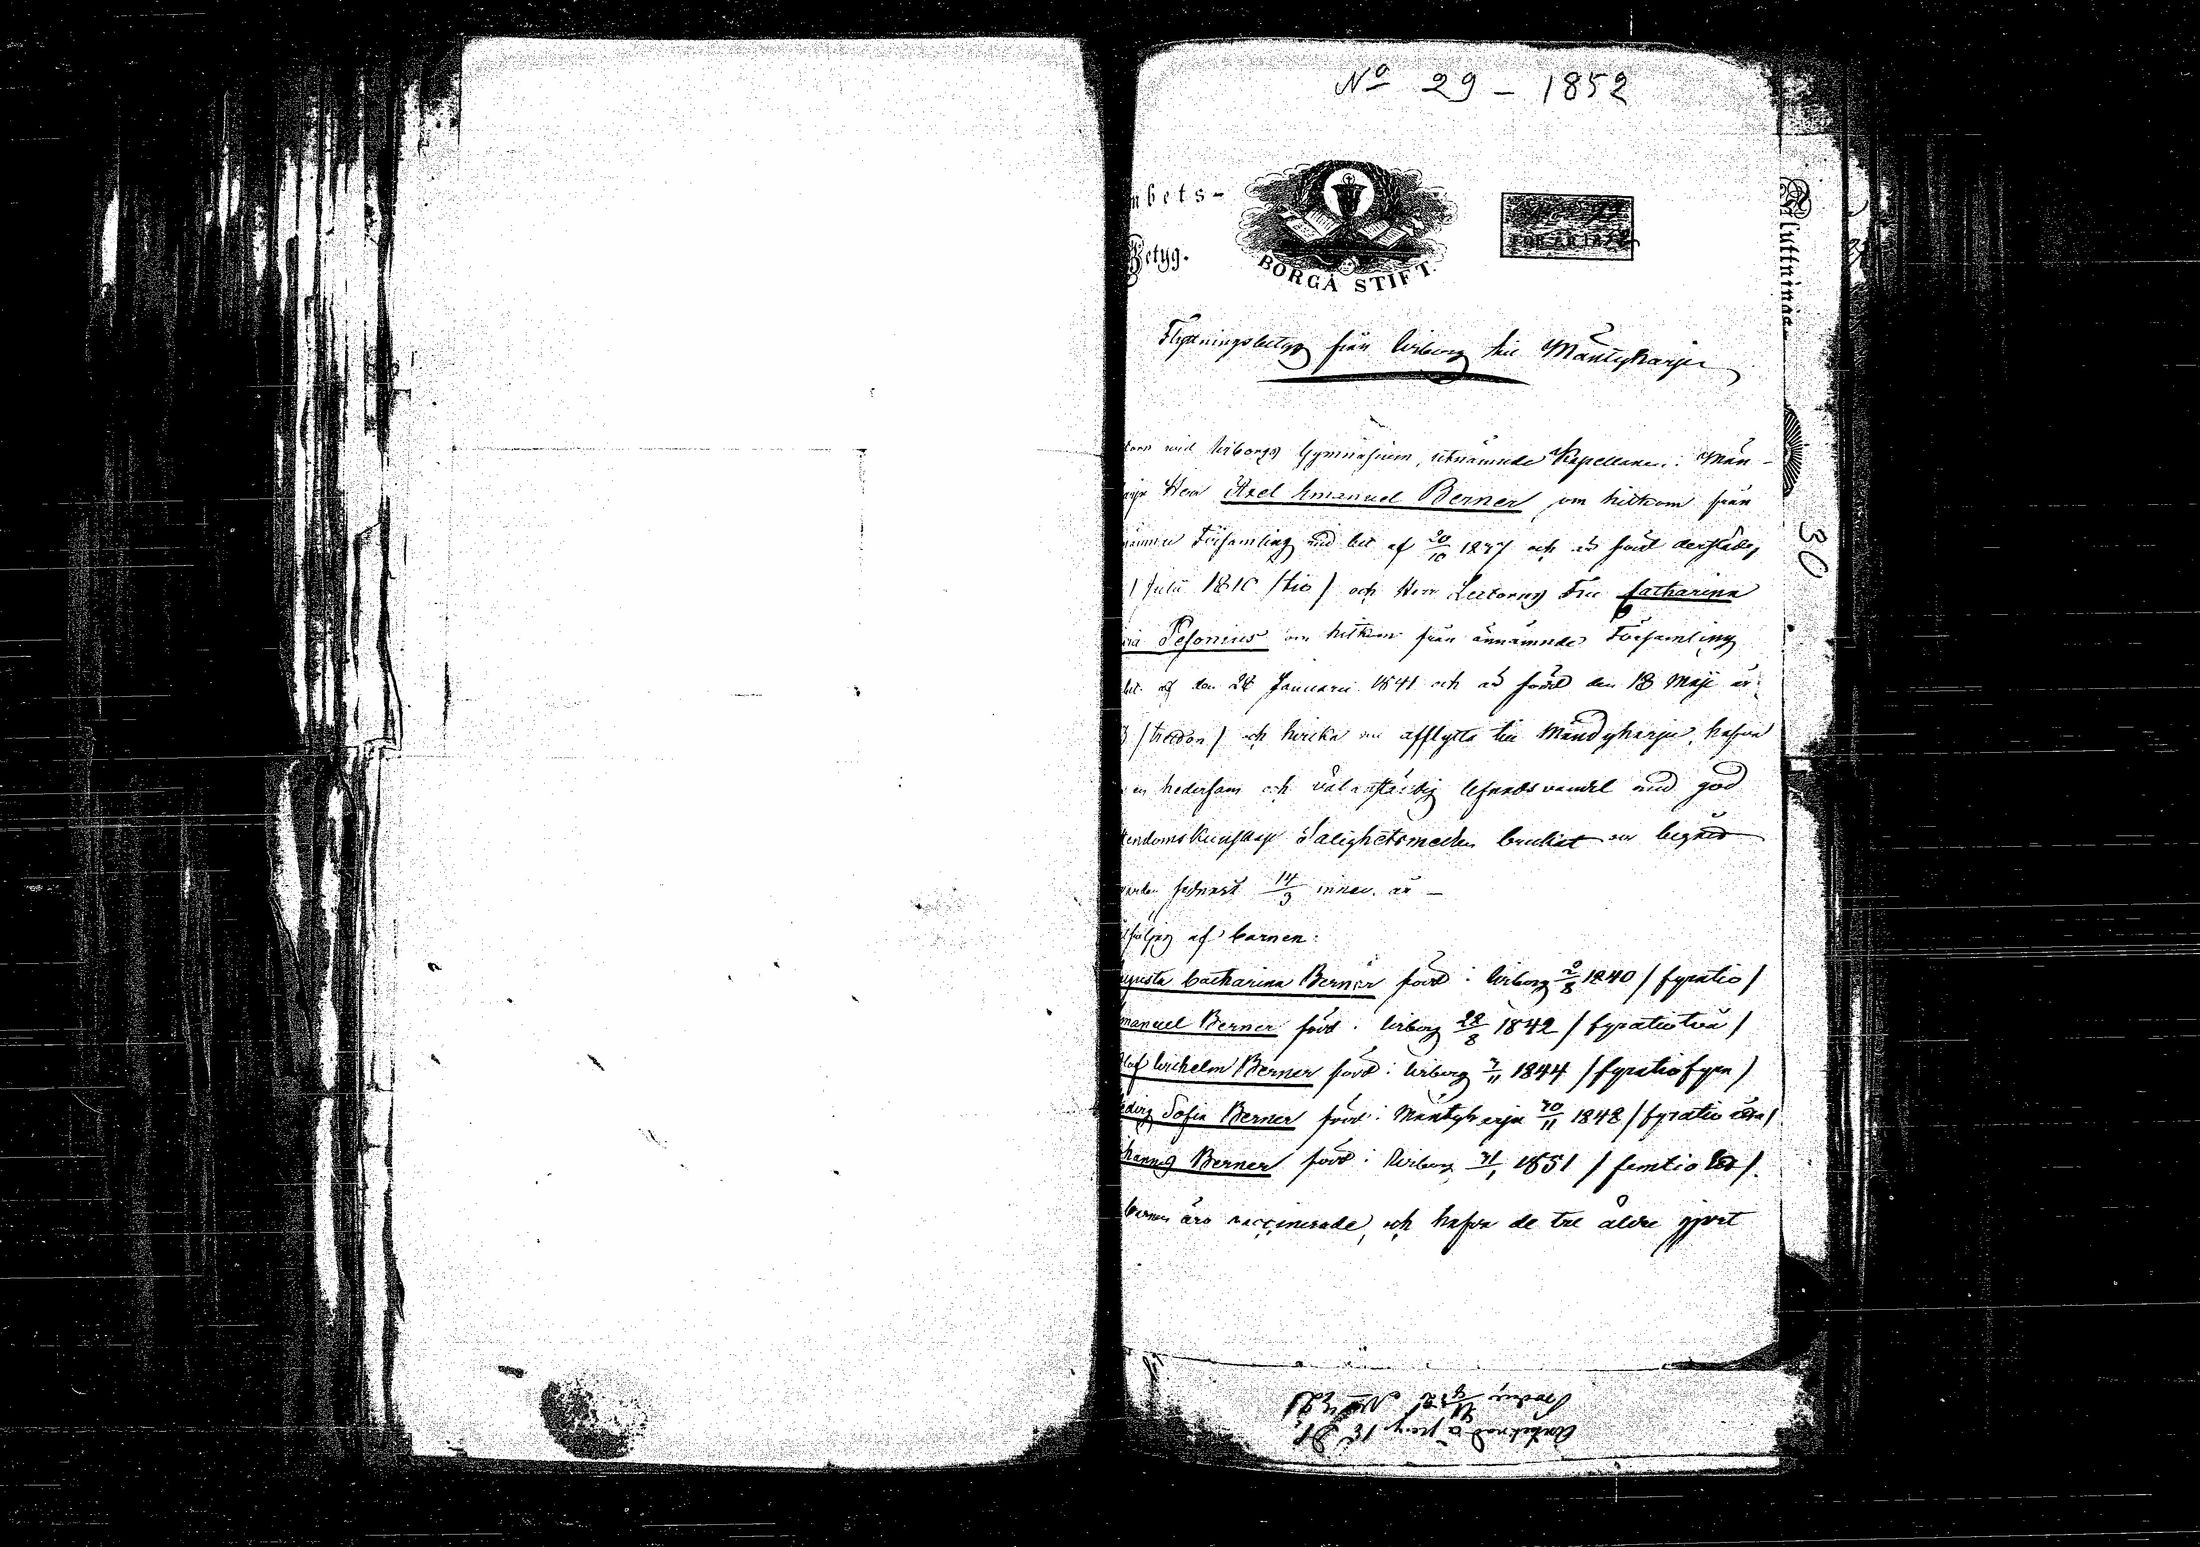 No 29 - 1852
mbets-
Betyg.
BORGÅ STIFT.
FÖR ÅR 1852
Flyttningsbetyg från Wiborg till Mäntyharju
vid Wiborgs Gymnasium, utnämnde Kapellanen i Män-
Herr Axel Emanuel Berner, som hitkom från
Församling med bet af 20/10 1837 och är född derstädes
Julii 1810 /tio/ och Herr Lectorns Fru Catharina
Pesonius som hitkom från ännämnde Församling
bet. af den 24 Januari 1841 och är född den 18 Maji år
/tretton/ och hvilka nu afflytta till Mändyharju, hafva
en hedersam och välanständig lefnadsvandel med god
tendomskunskap Salighetsmedlen brukat och begått
sednast 14/3 innev. år -
följas af barnen:
ugusta Catharina Berner född i Wiborg 2/8 1840 /fyratio/
manuel Berner född i Wiborg 28/8 1842 /fyratiotvå/
laf Wilhelm Berner född i Wiborg 7/11 1844 /fyratiofyra/
edvig Sofia Berner född i Mäntyharju 30/11 1848 /fyratio åtta/
hannes Berner född i Wiborg 31/1 1851 /femtio ett/.
barnen äro vaccinerade, och hafva de tre äldre gjort
Flyttnings-
30